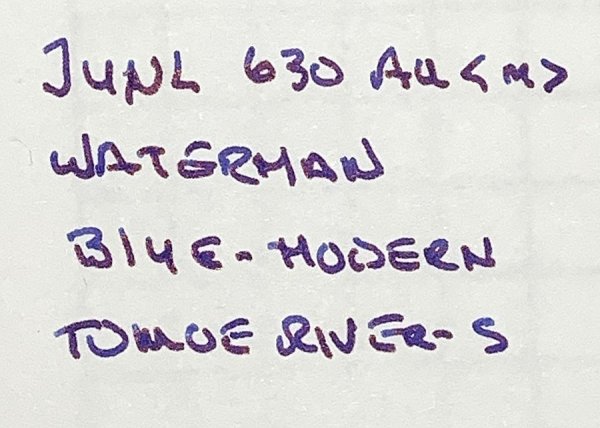 JUNL 630 Au <M>
WATERMAN
BLUE-MODERN
TOMOE RIVER-S